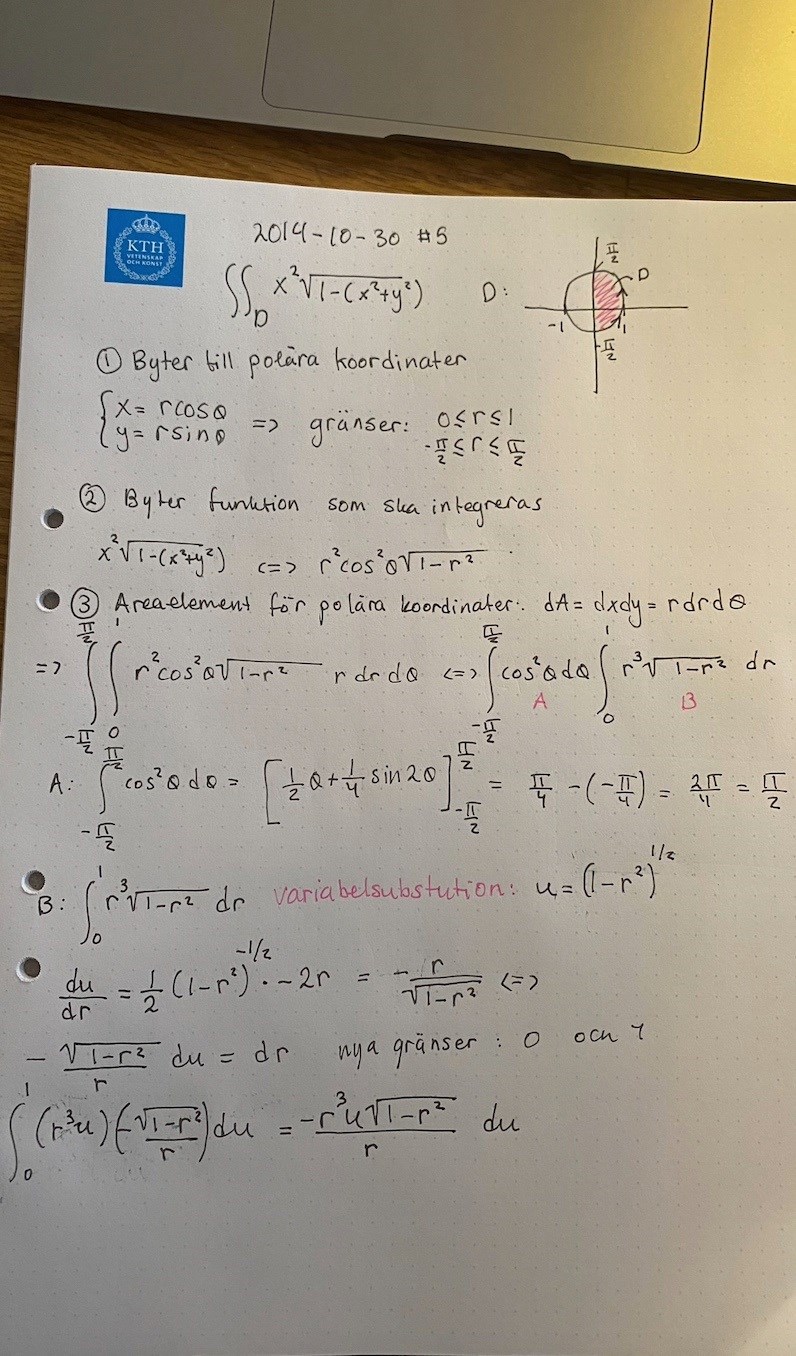 KTH
VETENSKAP
OCH KONST
2014-10-30 #5
∬_D x²√(1-(x²+y²)) D: -1 1 π/2 -π/2 D
① Byter till polära koordinater
{x= rcosθ
{y= rsinθ => gränser: 0≤r≤1
-π/2≤r≤π/2
② Byter funktion som ska integreras
x²√(1-(x²+y²)) <=> r²cos²θ√(1-r²)
③ Areaelement för polära koordinater: dA= dxdy= rdrdθ
=> ∫_{-π/2}^{π/2} ∫_0^1 r²cos²θ√(1-r²) r dr dθ <=> ∫_{-π/2}^{π/2} cos²θ dθ ∫_0^1 r³√(1-r²) dr
A B
A: ∫_{-π/2}^{π/2} cos²θ dθ = [1/2 θ + 1/4 sin 2θ]_{-π/2}^{π/2} = π/4 -(-π/4) = 2π/4 = π/2
B: ∫_0^1 r³√(1-r²) dr variabelsubstution: u= (1-r²)^{1/2}
du/dr = 1/2 (1-r²)^{-1/2} · -2r = - r/√(1-r²) <=>
- √(1-r²)/r du = dr nya gränser: 0 och 1
∫_0^1 (r³u)(-√(1-r²)/r)du = -r³u√(1-r²)/r du